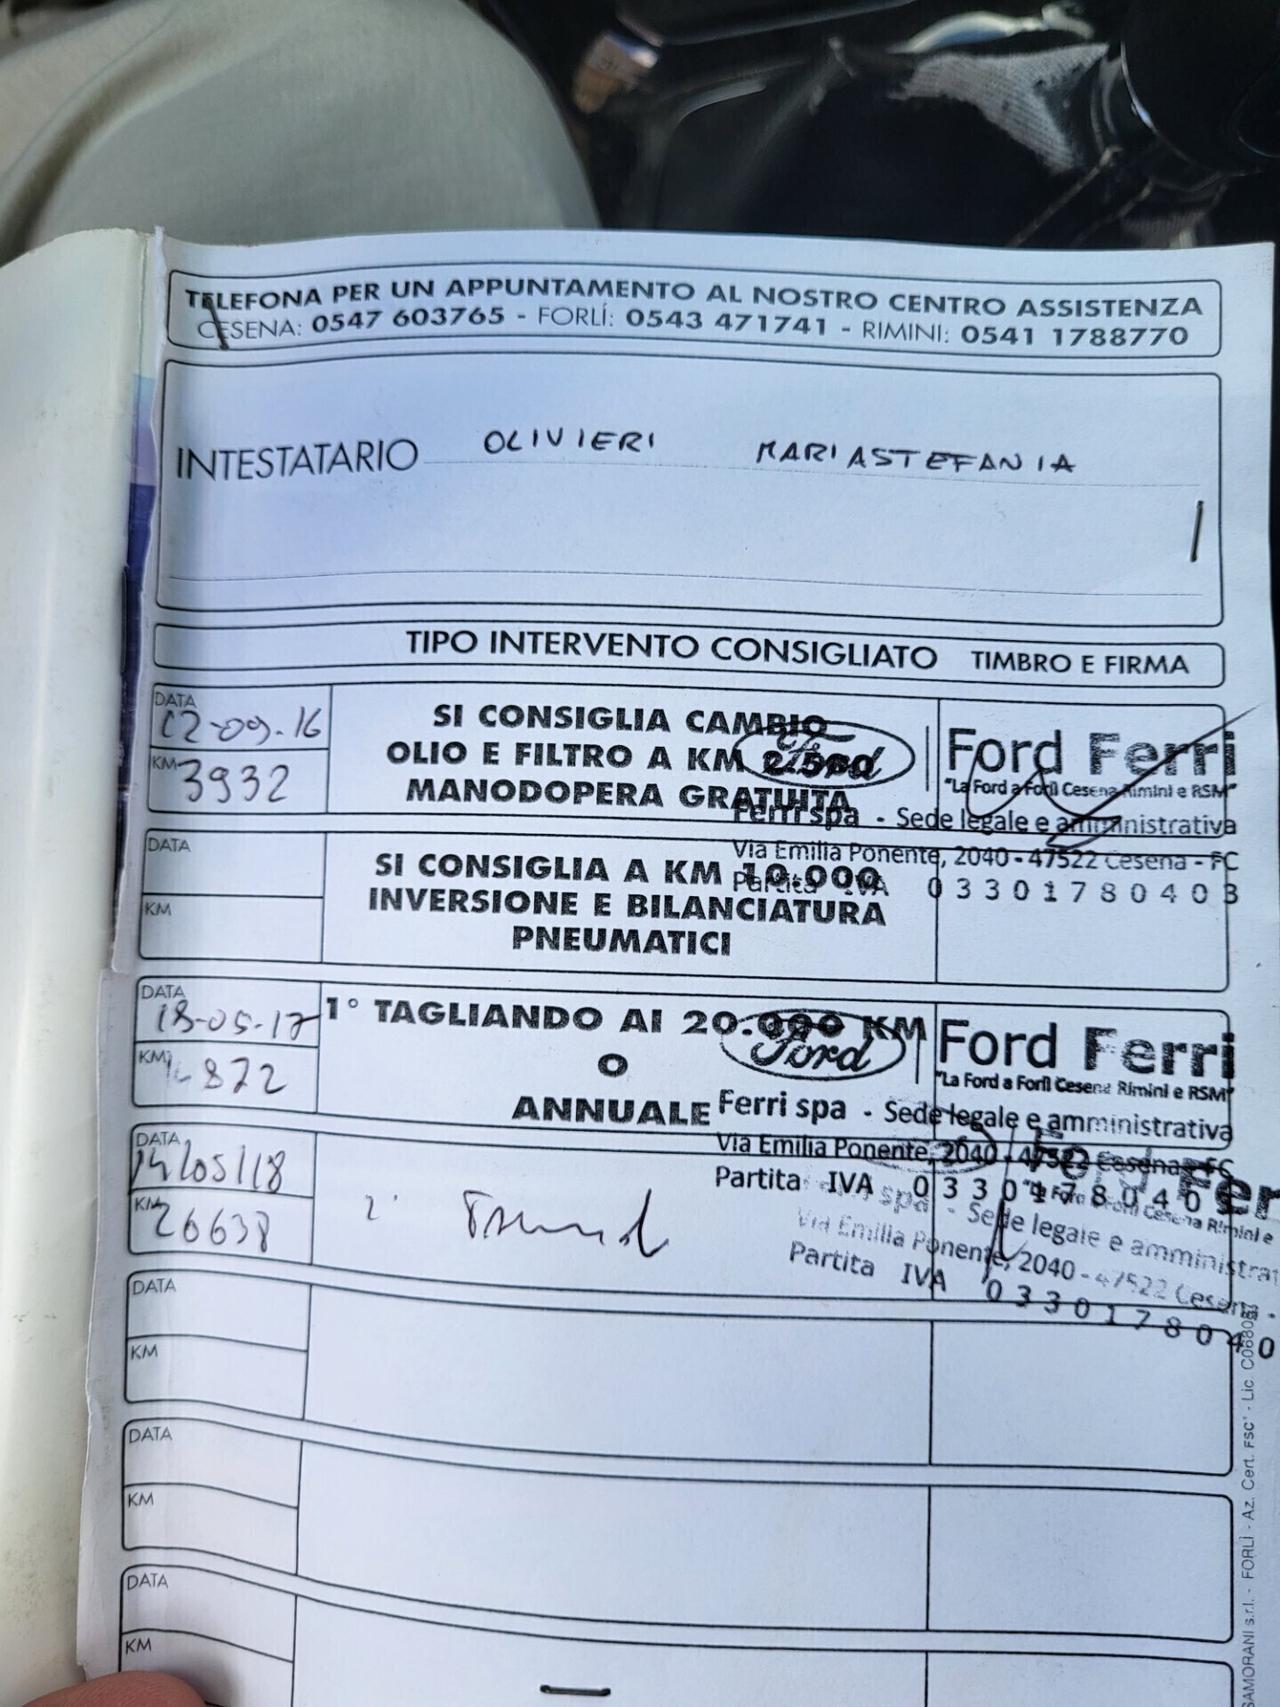 TELEFONA PER UN APPUNTAMENTO AL NOSTRO CENTRO ASSISTENZA
CESENA: 0547 603765 - FORLÌ: 0543 471741 - RIMINI: 0541 1788770
INTESTATARIO OLIVIERI MARIASTEFANIA
TIPO INTERVENTO CONSIGLIATO TIMBRO E FIRMA
DATA
12-09-16
KM 3932
SI CONSIGLIA CAMBIO
OLIO E FILTRO A KM 2.500
MANODOPERA GRATUITA
Ford
Ford Ferri
"La Ford a Forlì Cesena Rimini e RSM"
Ferri spa - Sede legale e amministrativa
Via Emilia Ponente, 2040 - 47522 Cesena - FC
Partita IVA 03301780403
DATA
KM
SI CONSIGLIA A KM 10.000
INVERSIONE E BILANCIATURA
PNEUMATICI
DATA
18-05-17
KM 872
1° TAGLIANDO AI 20.000 KM
O
ANNUALE
Ford
Ford Ferri
"La Ford a Forlì Cesena Rimini e RSM"
Ferri spa - Sede legale e amministrativa
Via Emilia Ponente, 2040 - 47522 Cesena - FC
Partita IVA 0330178040
DATA
14/05/18
KM 26638
2°
Ford Fer
"La Ford a Forlì Cesena Rimini e
spa - Sede legale e amministrat
Via Emilia Ponente, 2040 - 47522 Cesena -
Partita IVA 0330178040
DATA
KM
DATA
KM
DATA
KM
SAMORANI s.r.l. - FORLÌ - Az. Cert. FSC® - Lic.